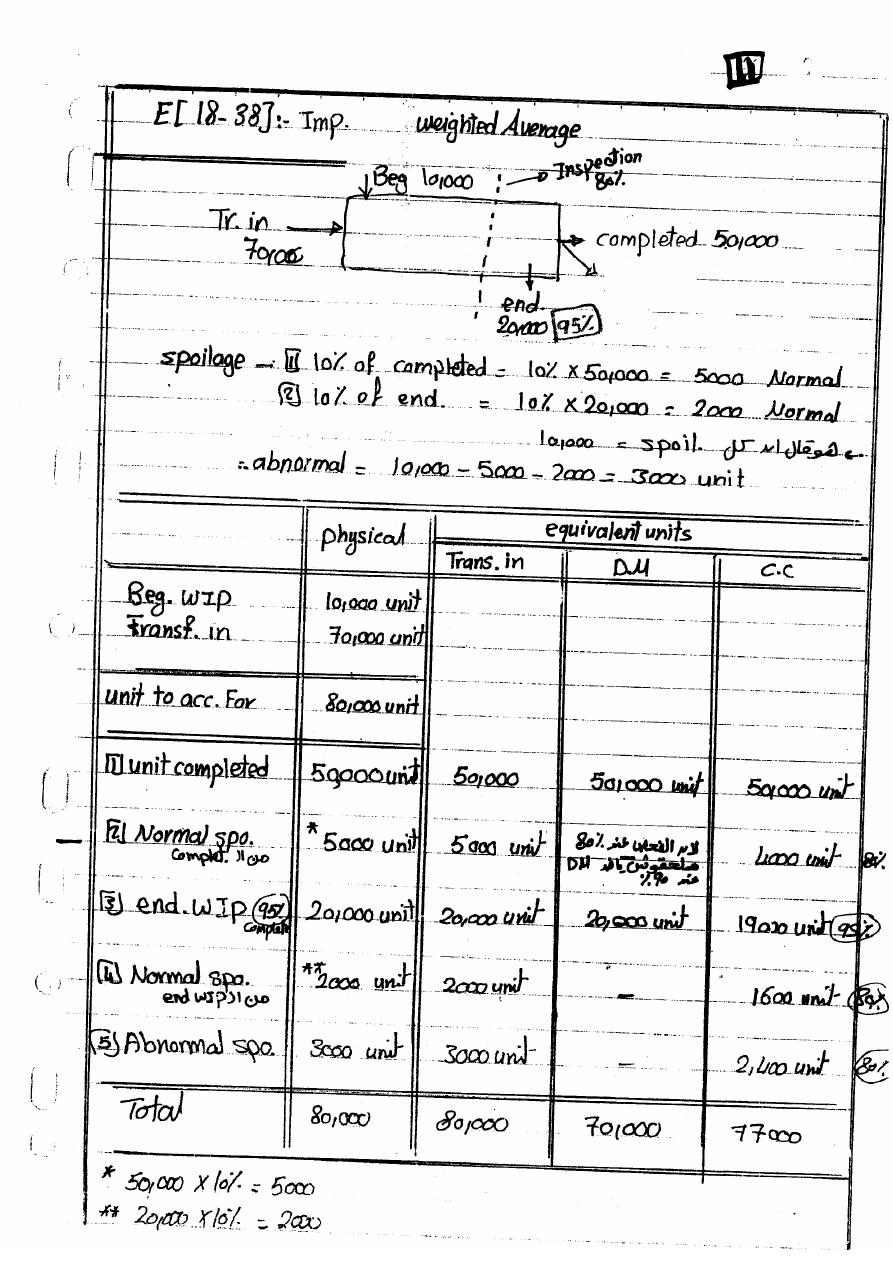 11
E[18-38]:- Imp. weighted Average
Beg 10,000
Inspection
80%
Tr. in
70,000
completed 50,000
end.
20,000 95%
spoilage → [1] 10% of completed = 10% X 50,000 = 5000 Normal
[2] 10% of end. = 10% X 20,000 = 2000 Normal
هو قال ان كل spoil. = 10,000
∴ abnormal = 10,000 - 5000 - 2000 = 3000 unit
physical equivalent units
Trans. in DM C.C
Beg. WIP 10,000 unit
Transf. in 70,000 unit
unit to acc. For 80,000 unit
[1] unit completed 50,000 unit 50,000 50,000 unit 50,000 unit
[2] Normal spo. * 5000 unit 5000 unit 4000 unit 80%
من الـ complet.
لان الفحص عند 80%
DM
عند 90%
[3] end. WIP 95% 20,000 unit 20,000 unit 20,000 unit 19000 unit 95%
complete
[4] Normal spo. ** 2000 unit 2000 unit - 1600 unit 80%
من الـ end WIP
[5] Abnormal spo. 3000 unit 3000 unit - 2,400 unit 80%
Total 80,000 80,000 70,000 77000
* 50,000 X 10% = 5000
** 20,000 X 10% = 2000